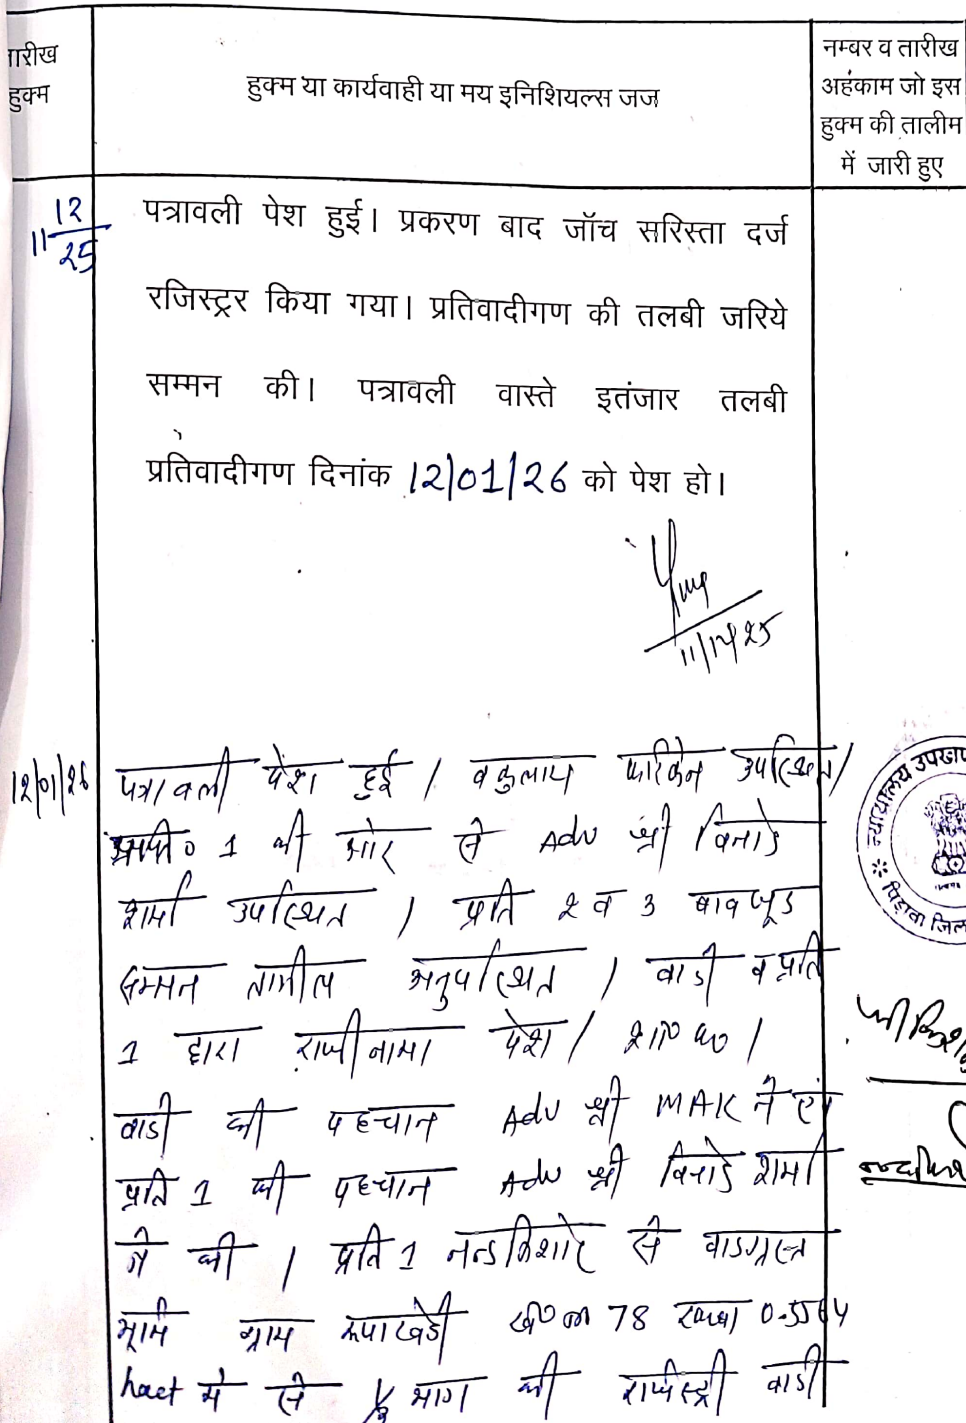 तारीख
हुक्म
हुक्म या कार्यवाही या मय इनिशियल्स जज
नम्बर व तारीख
अहंकाम जो इस
हुक्म की तालीम
में जारी हुए
11 12/25
पत्रावली पेश हुई। प्रकरण बाद जॉच सरिस्ता दर्ज
रजिस्ट्रर किया गया। प्रतिवादीगण की तलबी जरिये
सम्मन की। पत्रावली वास्ते इतंजार तलबी
प्रतिवादीगण दिनांक 12/01/26 को पेश हो।
11/12/25
12/01/26
पत्रावली पेश हुई। वकुलाय फरिकेन उपस्थित।
1 की ओर से Adv श्री विनोद
शर्मा उपस्थित। प्रति 2 व 3 बावजूद
सम्मन तामील अनुपस्थित। वादी व प्रति
1 द्वारा राजीनामा पेश।
वादी की पहचान Adv श्री MAK ने एवं
प्रति 1 की पहचान Adv श्री विनोद शर्मा
ने की। प्रति 1 नन्दकिशोर से वादग्रस्त
भूमि ग्राम रूपाखेडी ख०न० 78 रकबा 0.5564
hact में से भाग की राजिस्ट्री वादी
न्यायालय उपखण
पिड़ावा जिल